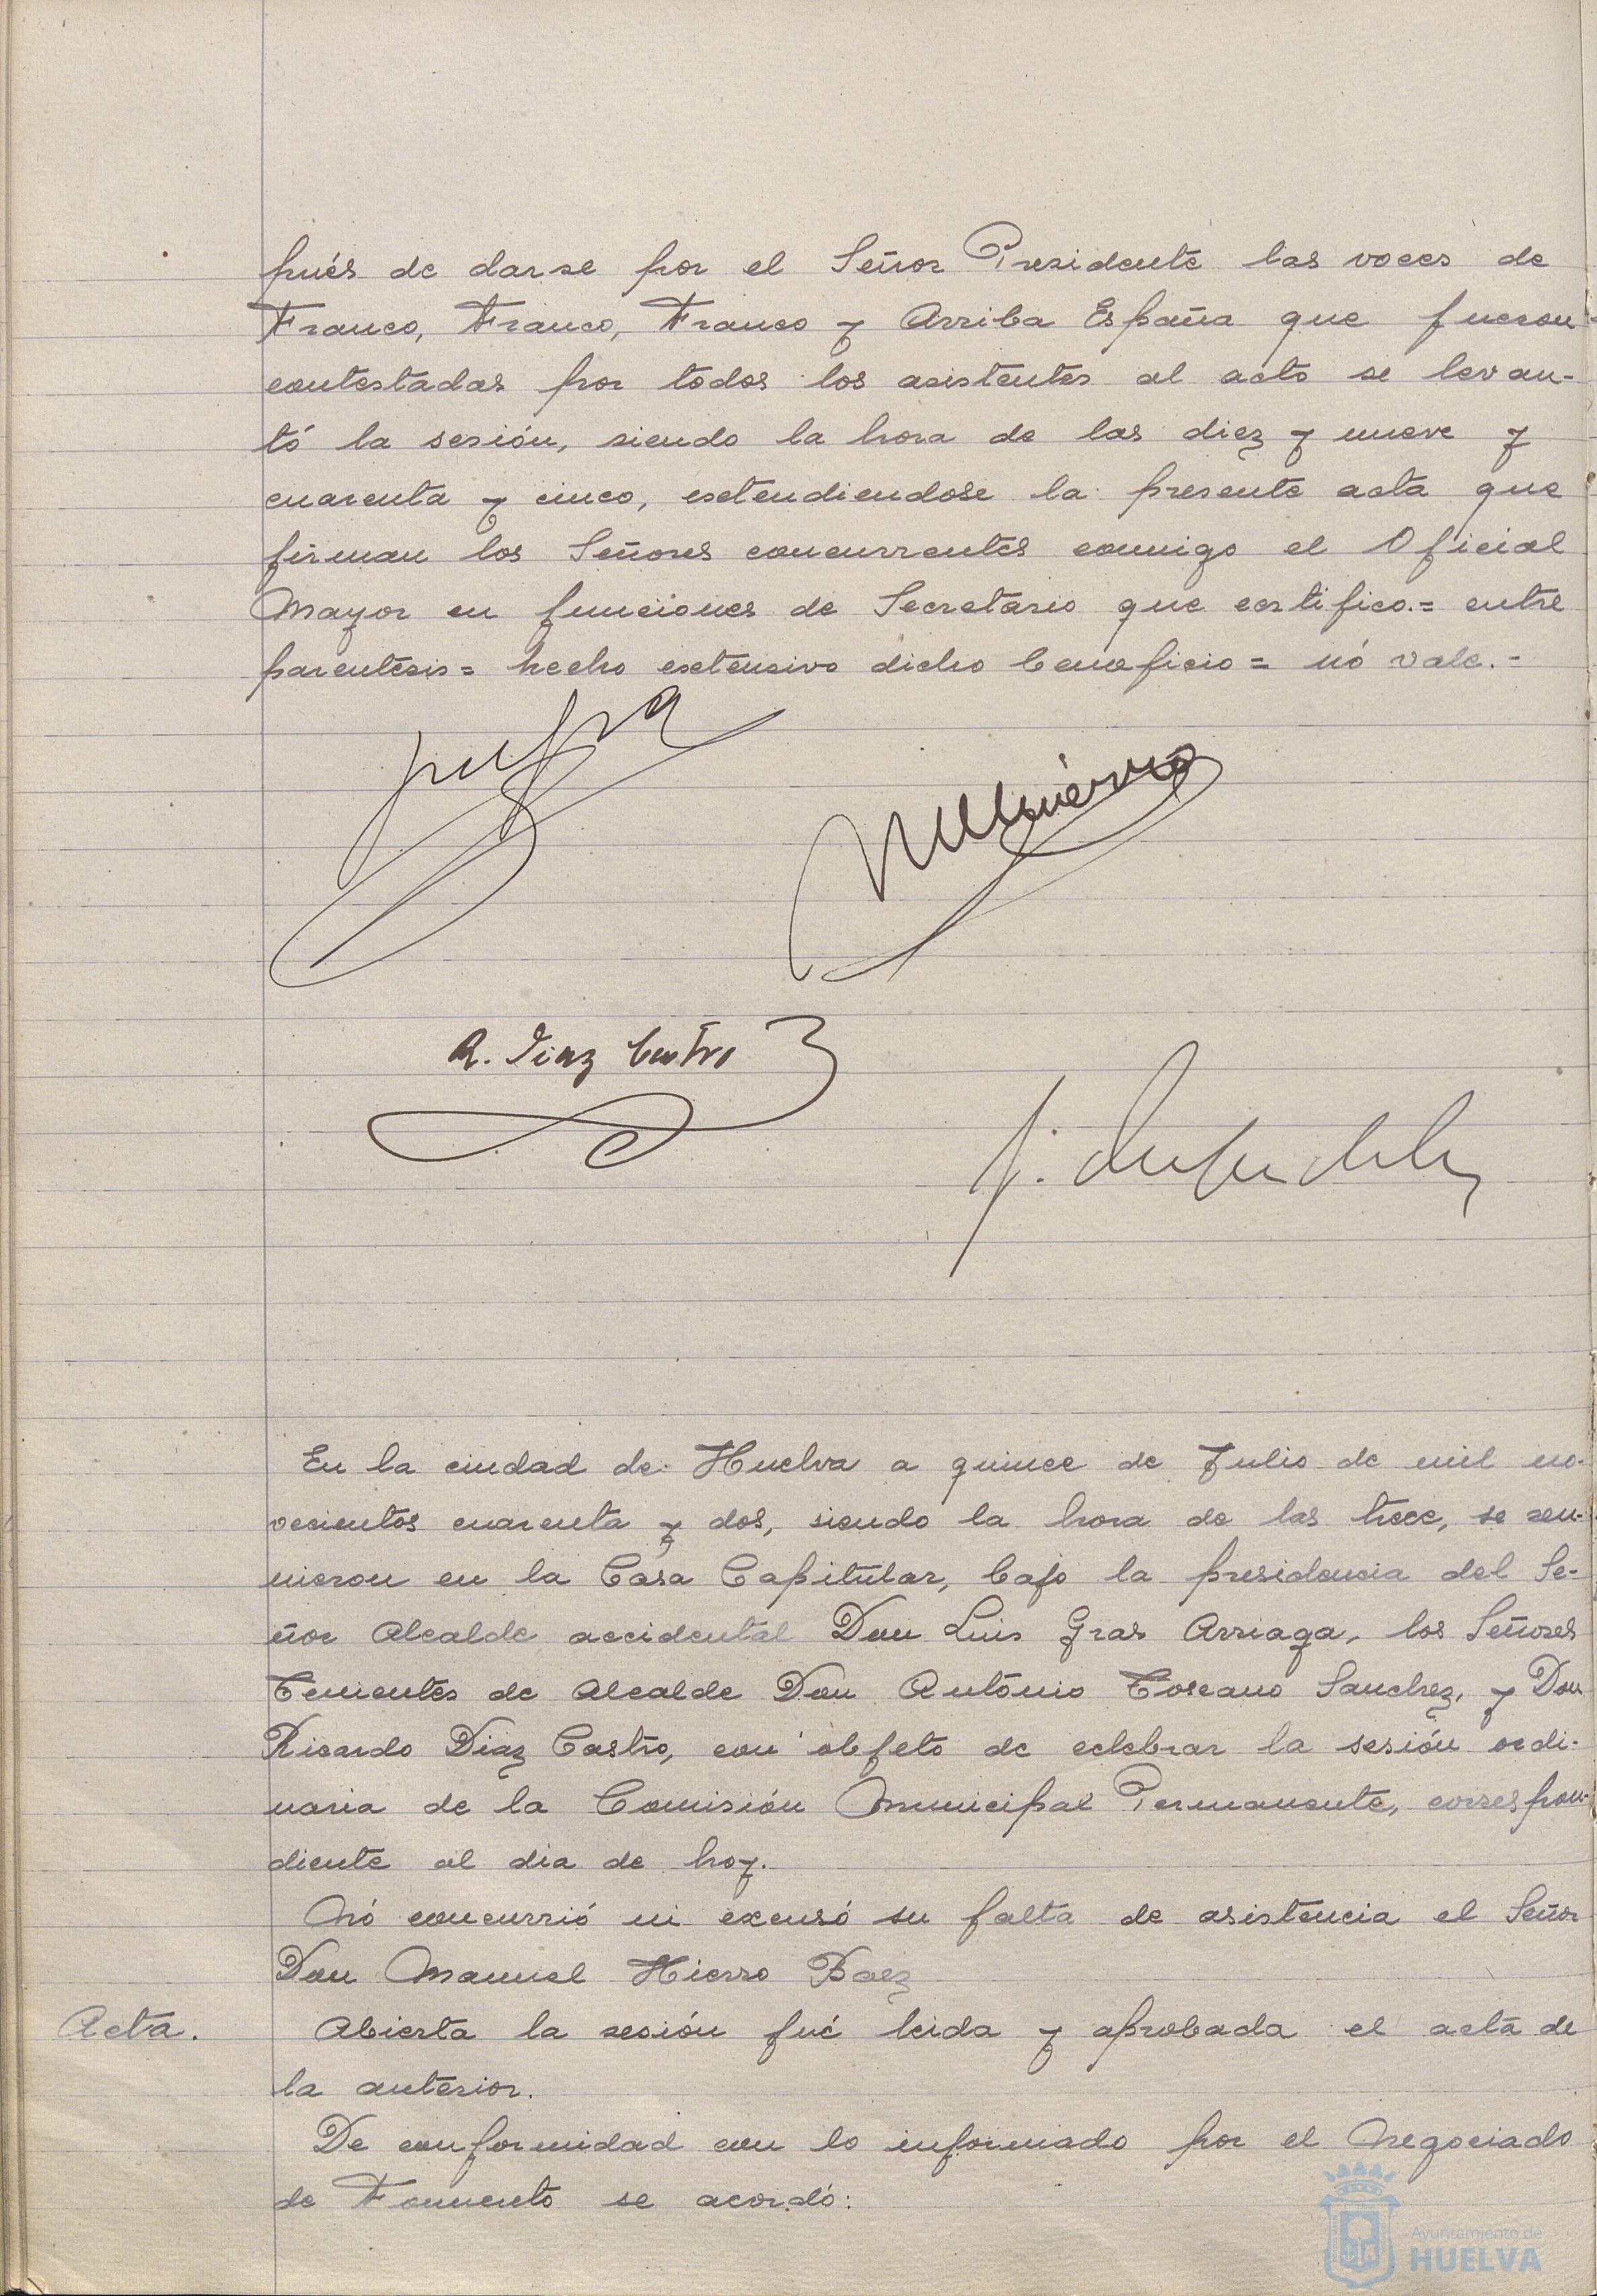 pués de darse por el Señor Presidente las voces de
Franco, Franco, Franco y Arriba España que fueron
contestadas por todos los asistentes al acto se levan-
tó la sesión, siendo la hora de las diez y nueve y
cuarenta y cinco, extendiendose la presente acta que
firman los Señores concurrentes conmigo el Oficial
Mayor en funciones de Secretario que certifico.= entre
parentesis= hecho extensivo dicho beneficio= nó vale.-
R. Diaz Castro
En la ciudad de Huelva a quince de Julio de mil no-
vecientos cuarenta y dos, siendo la hora de las trece, se reu-
nieron en la Casa Capitular, bajo la presidencia del Se-
ñor Alcalde accidental Don Luis Gras Arriaga, los Señores
Tenientes de Alcalde Don António Toscano Sanchez, y Don
Ricardo Diaz Castro, con objeto de celebrar la sesión ordi-
naria de la Comisión Municipal Permanente, correspon-
diente al dia de hoy.
Nó concurrió ni excusó su falta de asistencia el Señor
Don Manuel Hierro Baez
Acta. Abierta la sesión fué leida y aprobada el acta de
la anterior.
De conformidad con lo informado por el Negociado
de Fomento se acordó:
Ayuntamiento de
HUELVA